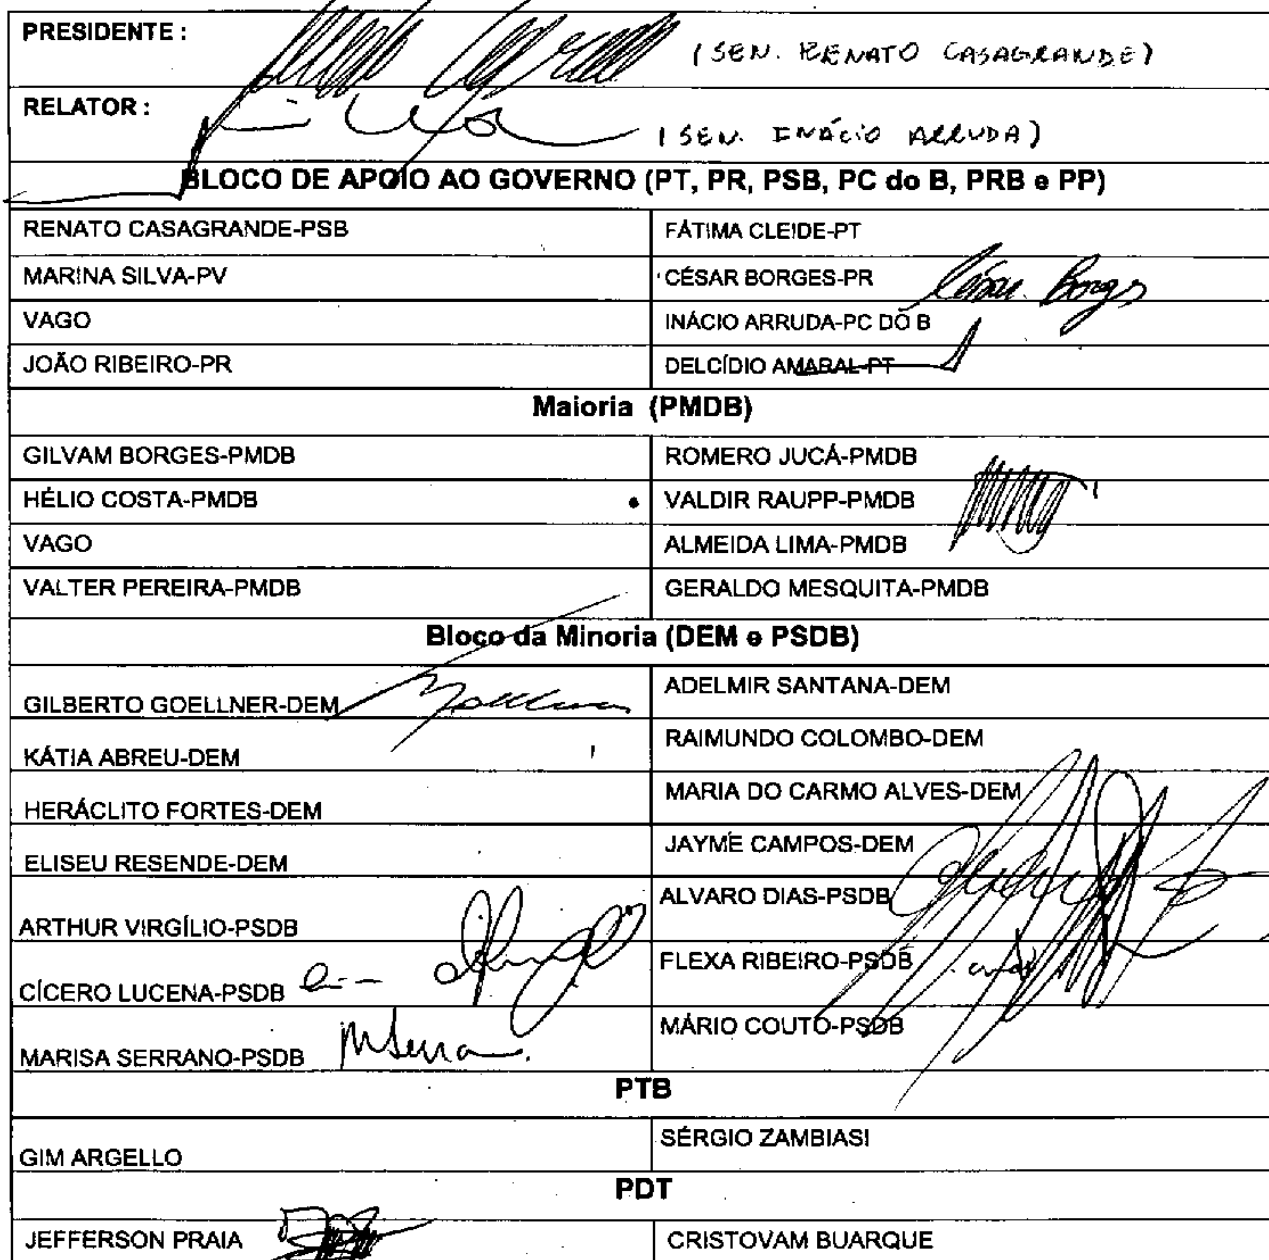 PRESIDENTE :
(SEN. RENATO CASAGRANDE)
RELATOR :
(SEN. INÁCIO ARRUDA)
BLOCO DE APOIO AO GOVERNO (PT, PR, PSB, PC do B, PRB e PP)
RENATO CASAGRANDE-PSB
FÁTIMA CLEIDE-PT
MARINA SILVA-PV
CÉSAR BORGES-PR
César Borges
VAGO
INÁCIO ARRUDA-PC DO B
JOÃO RIBEIRO-PR
DELCÍDIO AMARAL-PT
Maioria (PMDB)
GILVAM BORGES-PMDB
ROMERO JUCÁ-PMDB
HÉLIO COSTA-PMDB
VALDIR RAUPP-PMDB
VAGO
ALMEIDA LIMA-PMDB
VALTER PEREIRA-PMDB
GERALDO MESQUITA-PMDB
Bloco da Minoria (DEM e PSDB)
GILBERTO GOELLNER-DEM
ADELMIR SANTANA-DEM
KÁTIA ABREU-DEM
RAIMUNDO COLOMBO-DEM
HERÁCLITO FORTES-DEM
MARIA DO CARMO ALVES-DEM
ELISEU RESENDE-DEM
JAYME CAMPOS-DEM
ARTHUR VIRGÍLIO-PSDB
ALVARO DIAS-PSDB
CÍCERO LUCENA-PSDB
FLEXA RIBEIRO-PSDB
MARISA SERRANO-PSDB
MÁRIO COUTO-PSDB
PTB
GIM ARGELLO
SÉRGIO ZAMBIASI
PDT
JEFFERSON PRAIA
CRISTOVAM BUARQUE